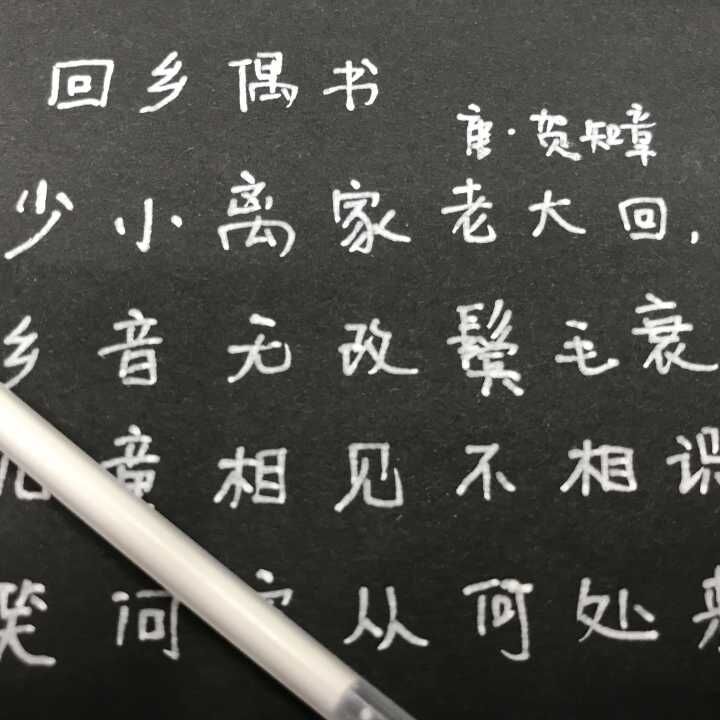 回乡偶书
唐·贺知章
少小离家老大回,
乡音无改鬓毛衰
儿童相见不相识
笑问客从何处来